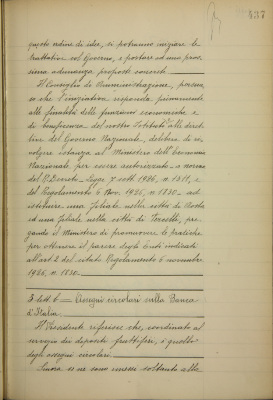 437
questo ordine di idee, si potranno iniziare le
trattative col Governo, e portare ad una pros-
sima adunanza proposte concrete.
Il Consiglio di Amministrazione, persua
so che l'iniziativa risponde pienamente
alle finalità delle funzioni economiche e
di beneficenza del nostro Istituto e alle diret
tive del Governo Nazionale, delibera di ri-
volgere istanza al Ministero dell'Economia
Nazionale per essere autorizzato a norma
del R. Decreto-Legge 7 sett. 1926, n. 1511, e
del Regolamento 6 Nov. 1926, n. 1830 ad
istituire una Filiale nella città di Aosta
ed una filiale nella città di Vercelli, pre-
gando il Ministero di promuovere le pratiche
per ottenere il parere degli Enti indicati
all'art. 2 del citato Regolamento 6 novembre
1926, n. 1830.
5 lett. b = Assegni circolari sulla Banca
d'Italia
Il Presidente riferisce che, coordinato al
servizio dei depositi fruttiferi, è quello
degli assegni circolari.
Finora se ne sono emessi soltanto alla